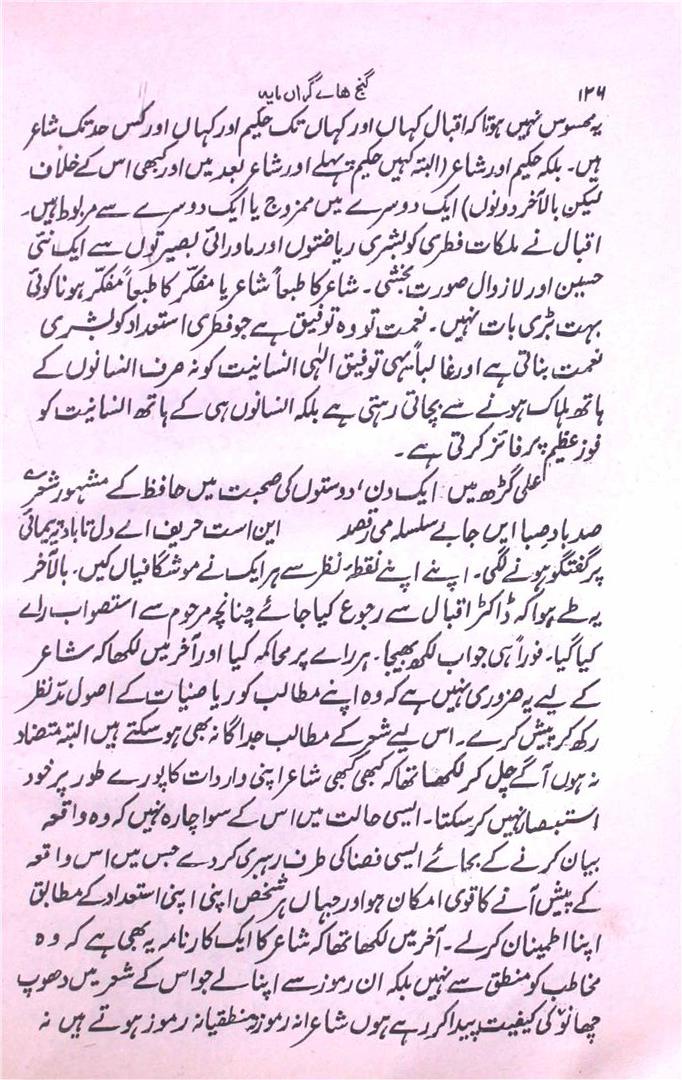 ۱۲۶
گنج ھاے گراں مایہ
یہ محسوس نہیں ہوتا کہ اقبال کہاں اور کہاں تک حکیم اور کہاں اور کس حد تک شاعر
ہیں۔ بلکہ حکیم اور شاعر (البتہ کہیں حکیم پہلے اور شاعر بعد میں اور کبھی اس کے خلاف
لیکن بالآخر دونوں) ایک دوسرے میں ممزوج یا ایک دوسرے سے مربوط ہیں۔
اقبال نے ملکات فطری کو بشری ریاضتوں اور ماورائی بصیرتوں سے ایک نئی
حسین اور لازوال صورت بخشی۔ شاعر کا طبعاً شاعر یا مفکّر کا طبعاً مفکّر ہونا کوئی
بہت بڑی بات نہیں۔ نعمت تو وہ توفیق ہے جو فطری استعداد کو بشری
نعمت بناتی ہے اور غالباً یہی توفیق الٰہی انسانیت کو نہ صرف انسانوں کے
ہاتھ ہلاک ہونے سے بچاتی رہتی ہے بلکہ انسانوں ہی کے ہاتھ انسانیت کو
فوز عظیم پر فائز کرتی ہے۔
علی گڑھ میں ایک دن، دوستوں کی صحبت میں حافظ کے مشہور شعر ؎
صد باد صبا ایں جا بے سلسلہ می رقصد این است حریف اے دل تا باد نہ پیمائی
پر گفتگو ہونے لگی۔ اپنے اپنے نقطۂ نظر سے ہر ایک نے موشگافیاں کیں۔ بالآخر
یہ طے ہوا کہ ڈاکٹر اقبال سے رجوع کیا جائے چنانچہ مرحوم سے استصواب راے
کیا گیا۔ فوراً ہی جواب لکھ بھیجا۔ ہر راے پر محاکمہ کیا اور آخر میں لکھا کہ شاعر
کے لیے یہ ضروری نہیں ہے کہ وہ اپنے مطالب کو ریاضیات کے اصول مدّنظر
رکھ کر پیش کرے۔ اس لیے شعر کے مطالب جداگانہ بھی ہو سکتے ہیں البتہ متضاد
نہ ہوں آگے چل کر لکھا تھا کہ کبھی کبھی شاعر اپنی واردات کا پورے طور پر خود
استبصار نہیں کر سکتا۔ ایسی حالت میں اس کے سوا چارہ نہیں کہ وہ واقعہ
بیان کرنے کے بجائے ایسی فضا کی طرف رہبری کر دے جس میں اس واقعہ
کے پیش آنے کا قوی امکان ہو اور جہاں ہر شخص اپنی اپنی استعداد کے مطابق
اپنا اطمینان کر لے۔ آخر میں لکھا تھا کہ شاعر کا ایک کارنامہ یہ بھی ہے کہ وہ
مخاطب کو منطق سے نہیں بلکہ ان رموز سے اپنا لے جو اس کے شعر میں دھوپ
چھانؤ کی کیفیت پیدا کر رہے ہوں شاعرانہ رموز منطقیانہ رموز ہوتے ہیں نہ